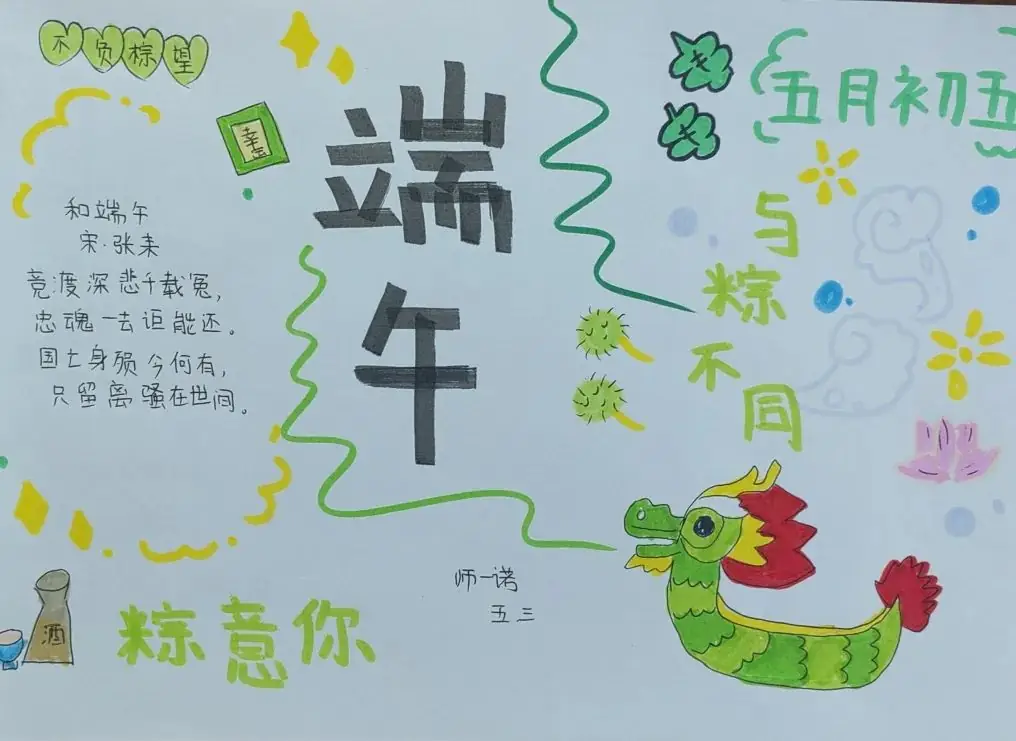 不负棕望
端午
五月初五
与
粽
不
同
和端午
宋·张耒
竞渡深悲千载冤，
忠魂一去讵能还。
国亡身殒今何有，
只留离骚在世间。
师一诺
五三
酒
粽意你